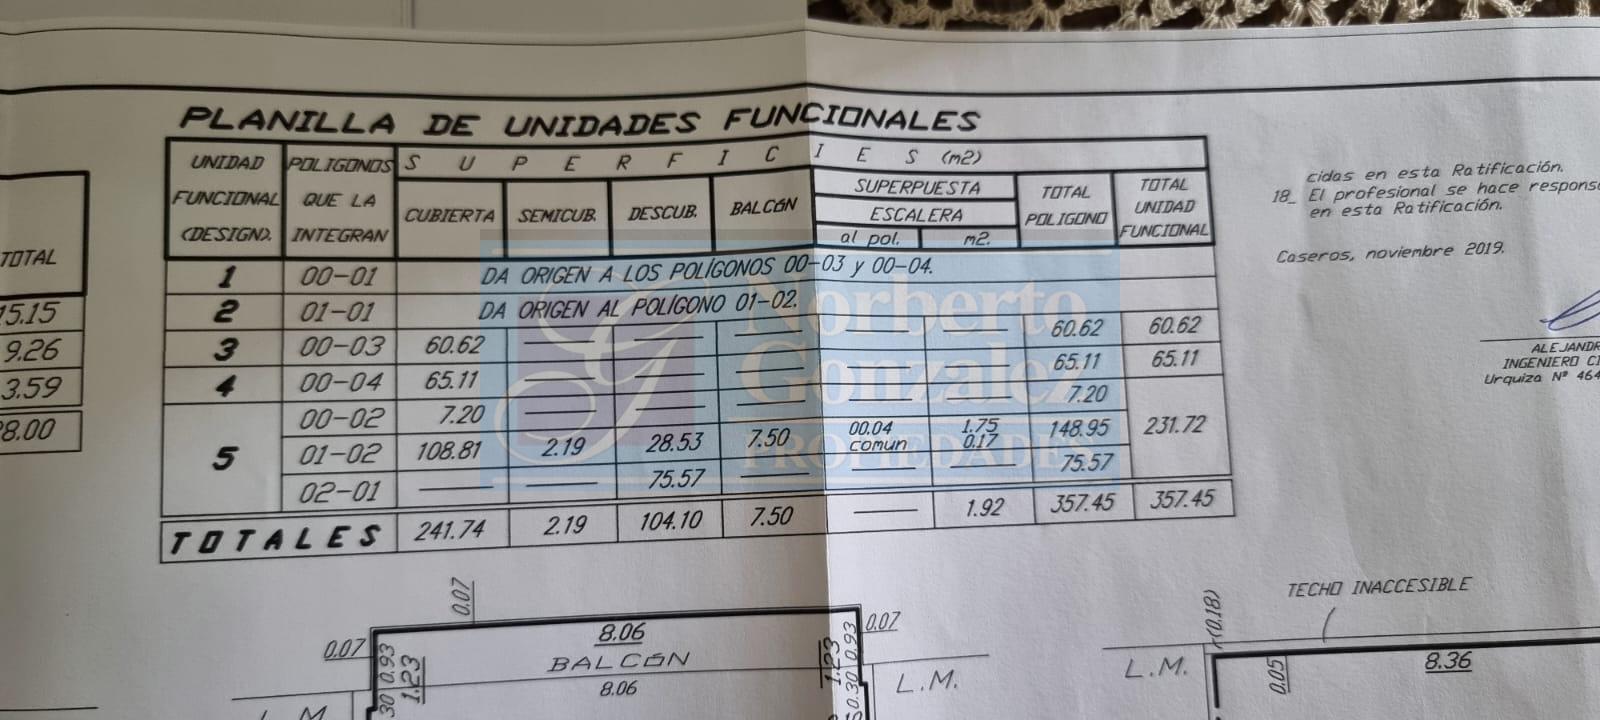 PLANILLA DE UNIDADES FUNCIONALES
UNIDAD FUNCIONAL (DESIGN). POLIGONOS QUE LA INTEGRAN S U P E R F I C I E S (m2)
CUBIERTA SEMICUB. DESCUB. BALCÓN SUPERPUESTA ESCALERA al pol. m2. TOTAL POLIGONO TOTAL UNIDAD FUNCIONAL
1 00-01 DA ORIGEN A LOS POLÍGONOS 00-03 y 00-04.
2 01-01 DA ORIGEN AL POLÍGONO 01-02.
3 00-03 60.62 — — — — — 60.62 60.62
4 00-04 65.11 — — — — — 65.11 65.11
5 00-02 7.20 — — — — — 7.20 231.72
01-02 108.81 2.19 28.53 7.50 00.04 1.75 148.95
comun 0.17
02-01 — — 75.57 — — — 75.57
TOTALES 241.74 2.19 104.10 7.50 — 1.92 357.45 357.45
TOTAL
15.15
9.26
3.59
8.00
cidas en esta Ratificación.
18_ El profesional se hace respons
en esta Ratificación.
Caseros, noviembre 2019.
ALEJANDR
INGENIERO CI
Urquiza Nº 464
Norberto
Gonzalez
PROPIEDADES
0.07
0.07
8.06
BALCÓN
8.06
0.07
30 0.93
1.23
1.23
0.30 0.93
L.M.
L.M.
L.M.
(0.18)
TECHO INACCESIBLE
0.05
8.36